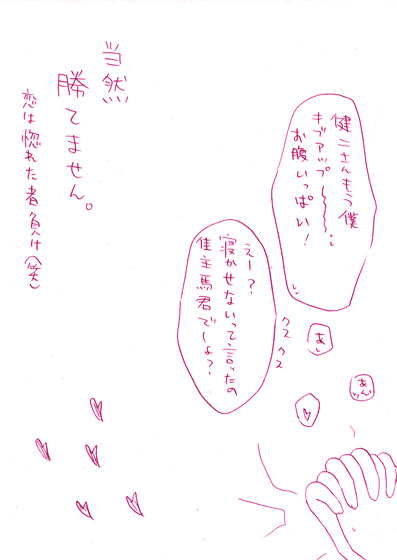 健二さんもう僕
ギブアップ〜〜
お腹いっぱい!
えー?
寝かせないって言ったの
佳主馬君でしょ?
クスクス
あっ
あんっ
♥
当然
勝てません。
恋は惚れた者負け(笑)